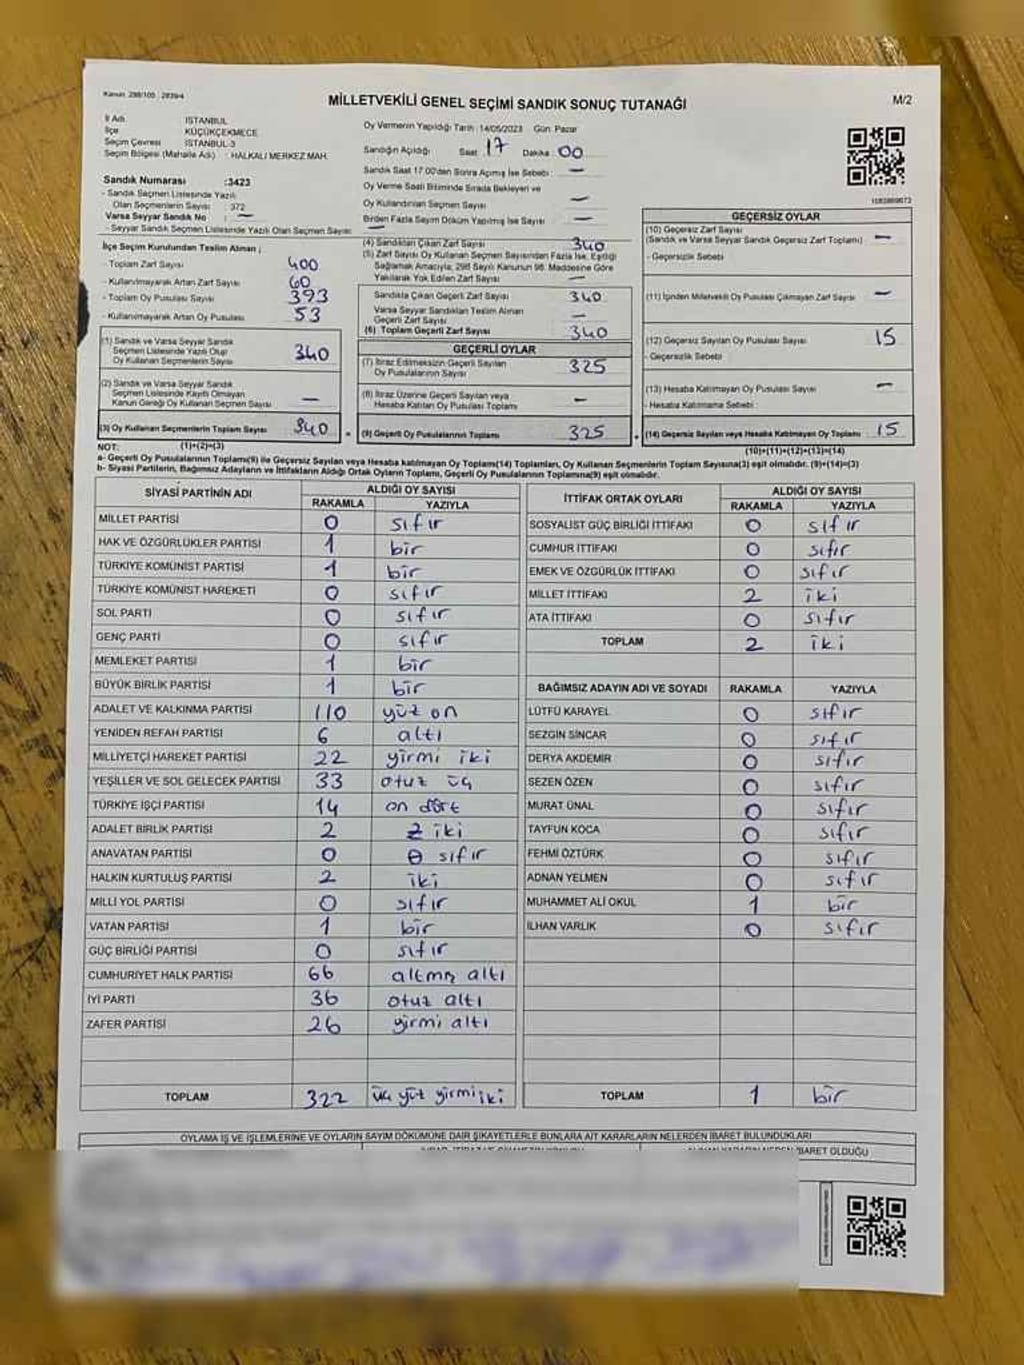 Kanun: 298/105 : 2839/4
MİLLETVEKİLİ GENEL SEÇİMİ SANDIK SONUÇ TUTANAĞI
M/2
İl Adı İSTANBUL
İlçe KÜÇÜKÇEKMECE
Seçim Çevresi İSTANBUL-3
Seçim Bölgesi (Mahalle Adı) : HALKALI MERKEZ MAH.
Sandık Numarası :3423
- Sandık Seçmen Listesinde Yazılı
Olan Seçmenlerin Sayısı : 372
Varsa Seyyar Sandık No : —
- Seyyar Sandık Seçmen Listesinde Yazılı Olan Seçmen Sayısı: —
Oy Vermenin Yapıldığı Tarih :14/05/2023 Gün: Pazar
Sandığın Açıldığı Saat 17 Dakika 00
Sandık Saat 17.00'den Sonra Açılmış İse Sebebi : —
Oy Verme Saati Bitiminde Sırada Bekleyen ve
Oy Kullandırılan Seçmen Sayısı —
Birden Fazla Sayım Döküm Yapılmış İse Sayısı —
İlçe Seçim Kurulundan Teslim Alınan ;
- Toplam Zarf Sayısı 400
- Kullanılmayarak Artan Zarf Sayısı 60
- Toplam Oy Pusulası Sayısı 393
- Kullanılmayarak Artan Oy Pusulası 53
(1) Sandık ve Varsa Seyyar Sandık
Seçmen Listesinde Yazılı Olup
Oy Kullanan Seçmenlerin Sayısı 340
(2) Sandık ve Varsa Seyyar Sandık
Seçmen Listesinde Kayıtlı Olmayan
Kanun Gereği Oy Kullanan Seçmen Sayısı —
(3) Oy Kullanan Seçmenlerin Toplam Sayısı 340
(1)+(2)=(3)
(4) Sandıktan Çıkan Zarf Sayısı 340
(5) Zarf Sayısı Oy Kullanan Seçmen Sayısından Fazla İse, Eşitliği
Sağlamak Amacıyla, 298 Sayılı Kanunun 98. Maddesine Göre
Yakılarak Yok Edilen Zarf Sayısı —
Sandıkta Çıkan Geçerli Zarf Sayısı 340
Varsa Seyyar Sandıktan Teslim Alınan
Geçerli Zarf Sayısı —
(6) Toplam Geçerli Zarf Sayısı 340
GEÇERLİ OYLAR
(7) İtiraz Edilmeksizin Geçerli Sayılan
Oy Pusulalarının Sayısı 325
(8) İtiraz Üzerine Geçerli Sayılan veya
Hesaba Katılan Oy Pusulası Toplamı —
(9) Geçerli Oy Pusulalarının Toplamı 325
GEÇERSİZ OYLAR
(10) Geçersiz Zarf Sayısı —
(Sandık ve Varsa Seyyar Sandık Geçersiz Zarf Toplamı)
- Geçersizlik Sebebi
(11) İçinden Milletvekili Oy Pusulası Çıkmayan Zarf Sayısı —
(12) Geçersiz Sayılan Oy Pusulası Sayısı 15
- Geçersizlik Sebebi
(13) Hesaba Katılmayan Oy Pusulası Sayısı —
- Hesaba Katılmama Sebebi
(14) Geçersiz Sayılan veya Hesaba Katılmayan Oy Toplamı 15
(10)+(11)+(12)+(13)=(14)
NOT:
a- Geçerli Oy Pusulalarının Toplamı(9) ile Geçersiz Sayılan veya Hesaba katılmayan Oy Toplam(14) Toplamları, Oy Kullanan Seçmenlerin Toplam Sayısına(3) eşit olmalıdır. (9)+(14)=(3)
b- Siyasi Partilerin, Bağımsız Adayların ve İttifakların Aldığı Ortak Oyların Toplamı, Geçerli Oy Pusulalarının Toplamına(9) eşit olmalıdır.
SİYASİ PARTİNİN ADI ALDIĞI OY SAYISI
RAKAMLA YAZIYLA
MİLLET PARTİSİ 0 sıfır
HAK VE ÖZGÜRLÜKLER PARTİSİ 1 bir
TÜRKİYE KOMÜNİST PARTİSİ 1 bir
TÜRKİYE KOMÜNİST HAREKETİ 0 sıfır
SOL PARTİ 0 sıfır
GENÇ PARTİ 0 sıfır
MEMLEKET PARTİSİ 1 bir
BÜYÜK BİRLİK PARTİSİ 1 bir
ADALET VE KALKINMA PARTİSİ 110 yüz on
YENİDEN REFAH PARTİSİ 6 altı
MİLLİYETÇİ HAREKET PARTİSİ 22 yirmi iki
YEŞİLLER VE SOL GELECEK PARTİSİ 33 otuz üç
TÜRKİYE İŞÇİ PARTİSİ 14 on dört
ADALET BİRLİK PARTİSİ 2 2 iki
ANAVATAN PARTİSİ 0 0 sıfır
HALKIN KURTULUŞ PARTİSİ 2 iki
MİLLİ YOL PARTİSİ 0 sıfır
VATAN PARTİSİ 1 bir
GÜÇ BİRLİĞİ PARTİSİ 0 sıfır
CUMHURİYET HALK PARTİSİ 66 altmış altı
İYİ PARTİ 36 otuz altı
ZAFER PARTİSİ 26 yirmi altı
TOPLAM 322 üç yüz yirmi iki
İTTİFAK ORTAK OYLARI ALDIĞI OY SAYISI
RAKAMLA YAZIYLA
SOSYALİST GÜÇ BİRLİĞİ İTTİFAKI 0 sıfır
CUMHUR İTTİFAKI 0 sıfır
EMEK VE ÖZGÜRLÜK İTTİFAKI 0 sıfır
MİLLET İTTİFAKI 2 iki
ATA İTTİFAKI 0 sıfır
TOPLAM 2 iki
BAĞIMSIZ ADAYIN ADI VE SOYADI RAKAMLA YAZIYLA
LÜTFÜ KARAYEL 0 sıfır
SEZGİN SİNCAR 0 sıfır
DERYA AKDEMİR 0 sıfır
SEZEN ÖZEN 0 sıfır
MURAT ÜNAL 0 sıfır
TAYFUN KOCA 0 sıfır
FEHMİ ÖZTÜRK 0 sıfır
ADNAN YELMEN 0 sıfır
MUHAMMET ALİ OKUL 1 bir
İLHAN VARLIK 0 sıfır
TOPLAM 1 bir
OYLAMA İŞ VE İŞLEMLERİNE VE OYLARIN SAYIM DÖKÜMÜNE DAİR ŞİKAYETLERLE BUNLARA AİT KARARLARIN NELERDEN İBARET BULUNDUKLARI
İBARET OLDUĞU